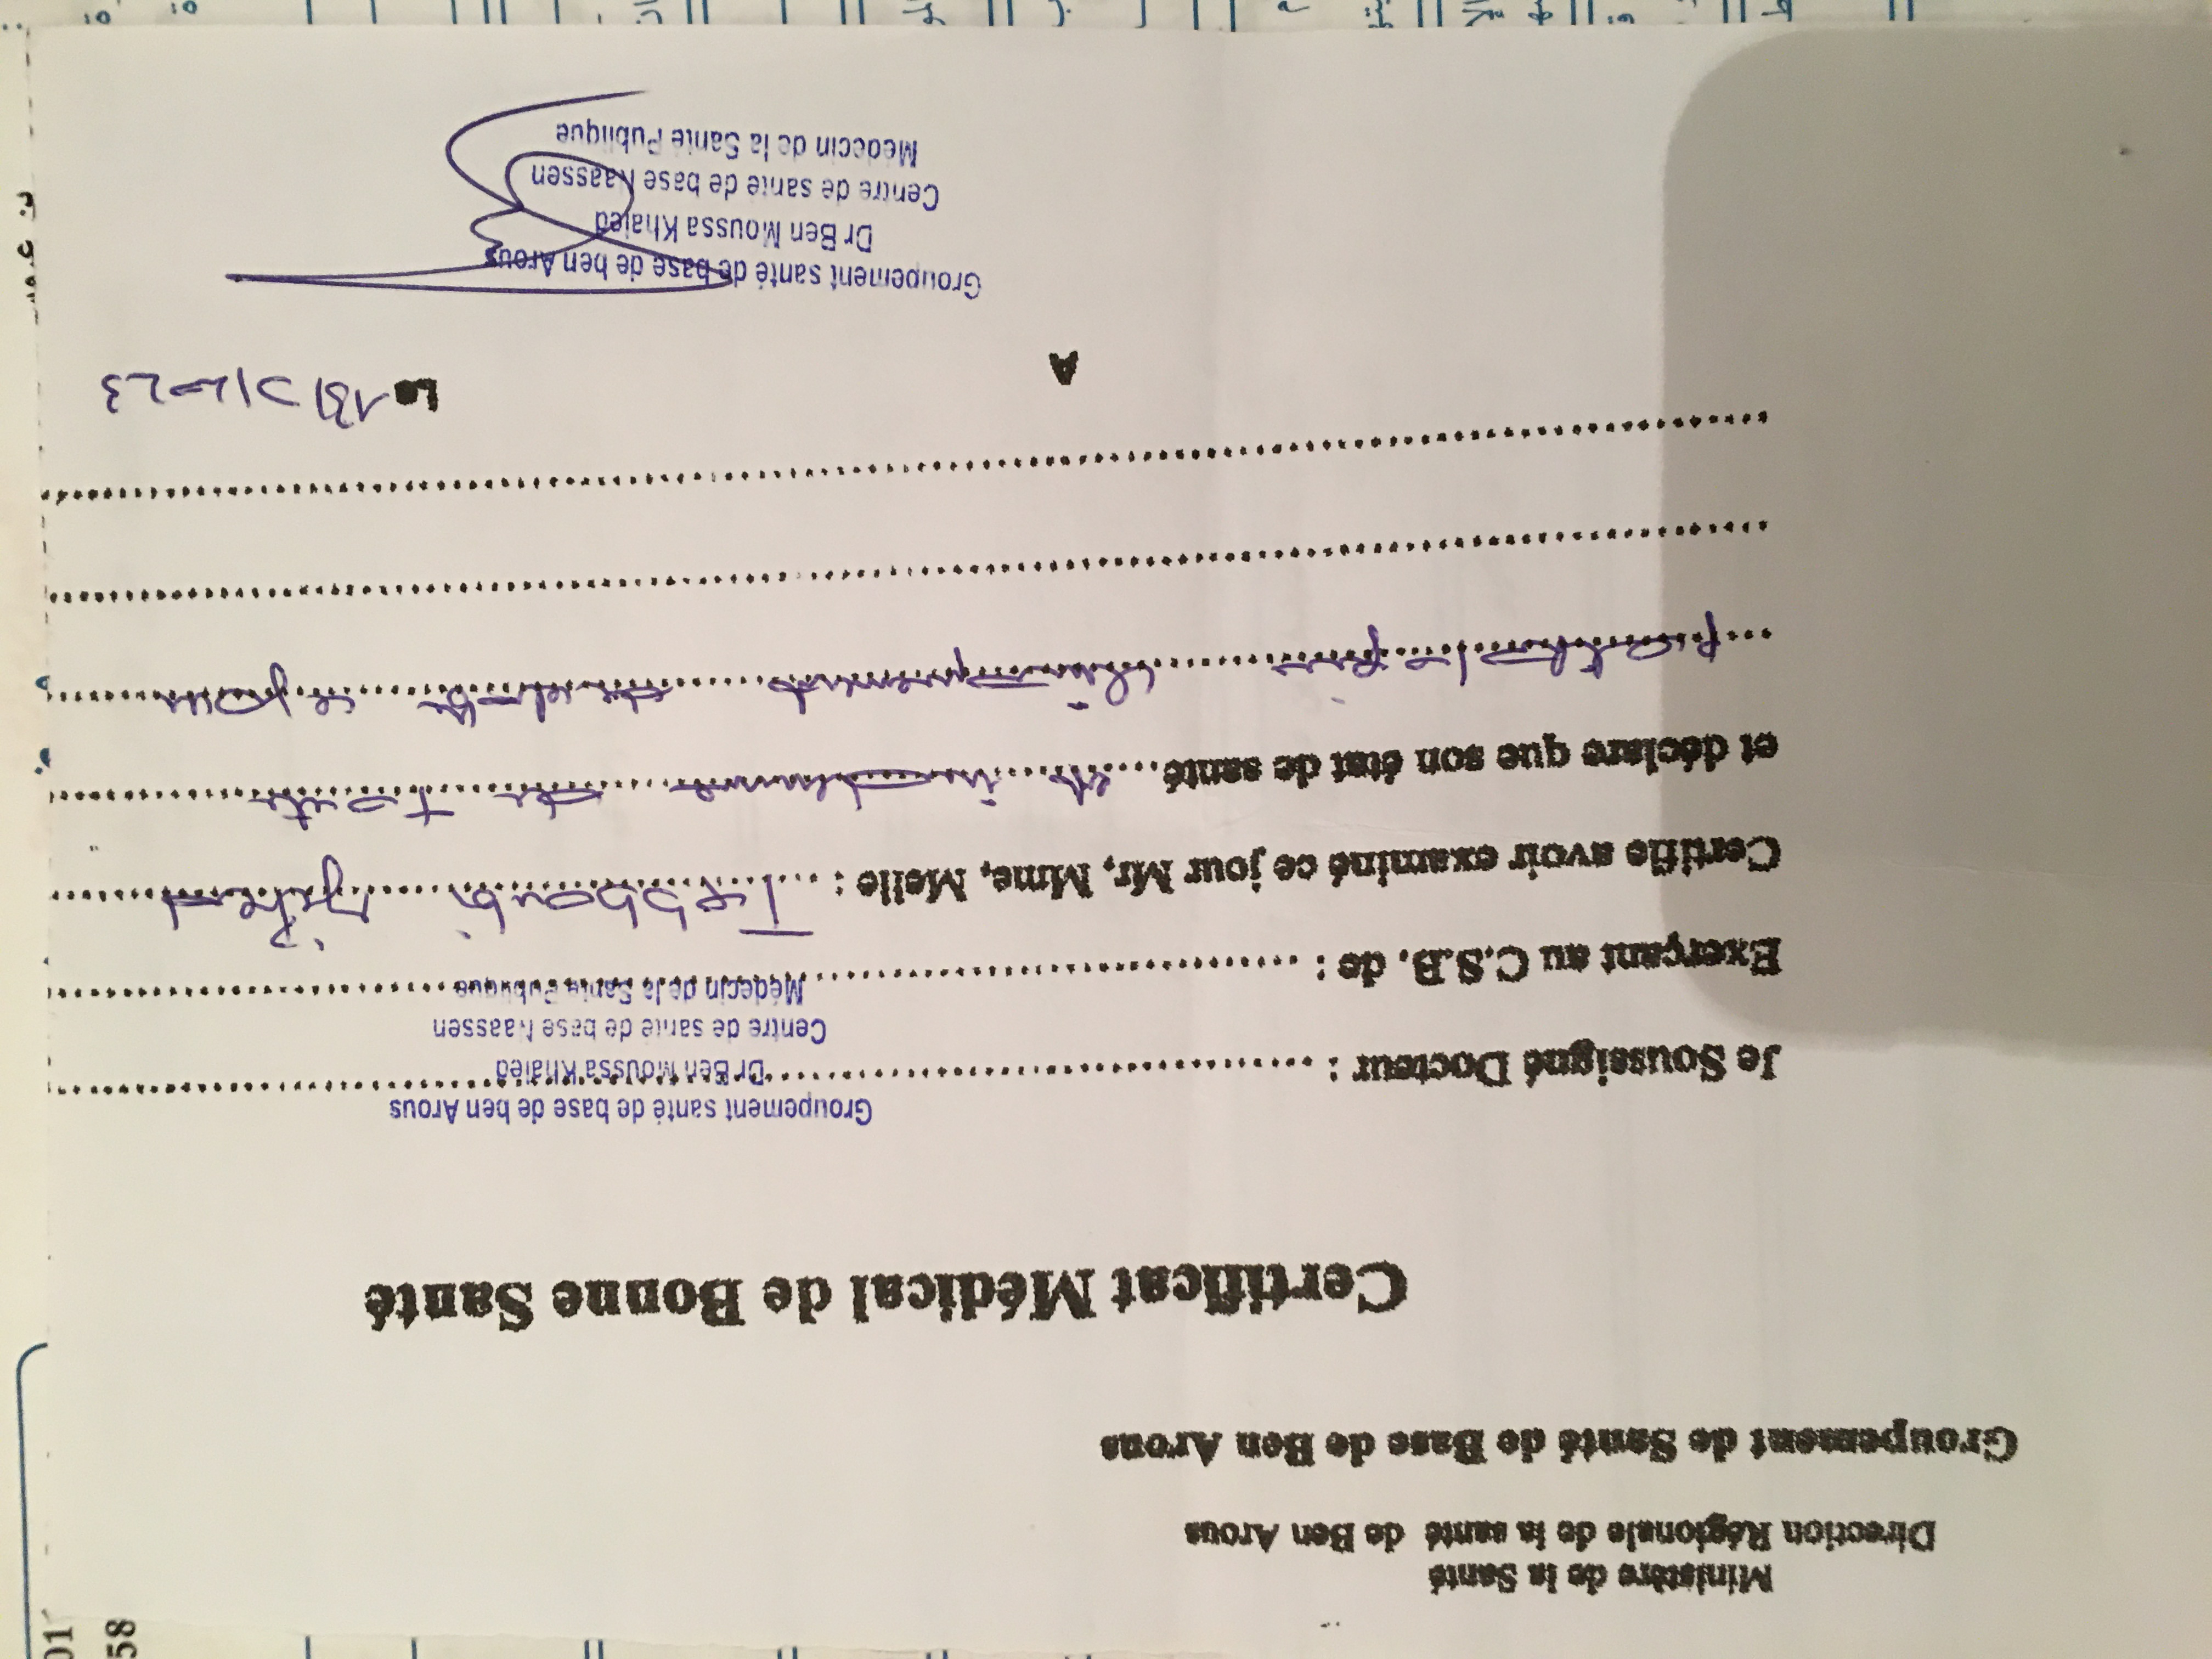 Ministère de la Santé
Direction Régionale de la santé de Ben Arous
Groupement de Santé de Base de Ben Arous
Certificat Médical de Bonne Santé
Groupement santé de base de ben Arous
Je Soussigné Docteur : Dr Ben Moussa Khaled
Centre de santé de base Naassen
Exerçant au C.S.B. de : Médecin de la Santé Publique
Certifie avoir examiné ce jour Mr, Mme, Melle :
et déclare que son état de santé est indemne de toute
pathologie cliniquement
A
Le
Groupement santé de base de ben Arous
Dr Ben Moussa Khaled
Centre de santé de base Naassen
Médecin de la Santé Publique
58